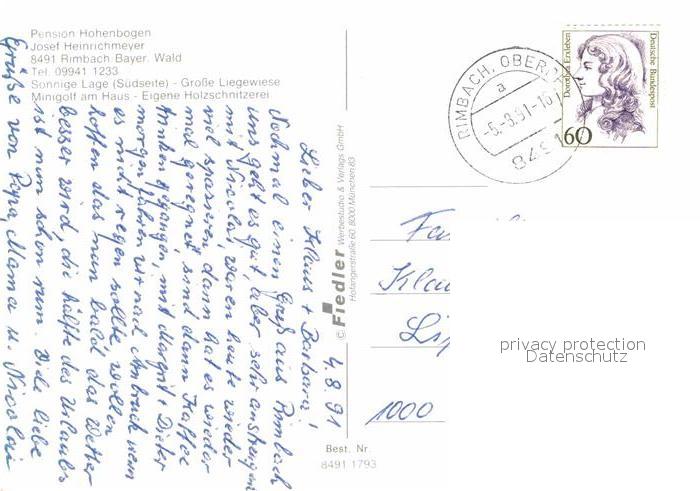 Pension Hohenbogen
Josef Heinrichmeyer
8491 Rimbach/Bayer. Wald
Tel. 09941 1233
Sonnige Lage (Südseite) - Große Liegewiese
Minigolf am Haus - Eigene Holzschnitzerei
4.8.91
Lieber Klaus + Barbara!
Nochmal einen Gruß aus Rimbach
uns geht es gut, aber sehr anstrengend
mit Nicolai, waren heute wieder
viel spazieren, dann hat es wieder
mal geregnet sind dann Kaffee
trinken gegangen, mit Margrit + Dieter
morgen fahren wir nach wenn
es nicht regnen sollte, wollen
hoffen das nun bald das Wetter
besser wird, die hälfte des Urlaubs
ist nun schon rum. Viele liebe
Grüße von Papa, Mama u. Nicolai
© Fiedler Werbestudio & Verlags GmbH
Hofangerstraße 60, 8000 München 83
Best. Nr.
8491 1793
RIMBACH, OBERP
a
-6.-8.91-16
8491
Dorothea Erxleben
Deutsche Bundespost
60
Fa
Klau
Li
1000
privacy protection
Datenschutz